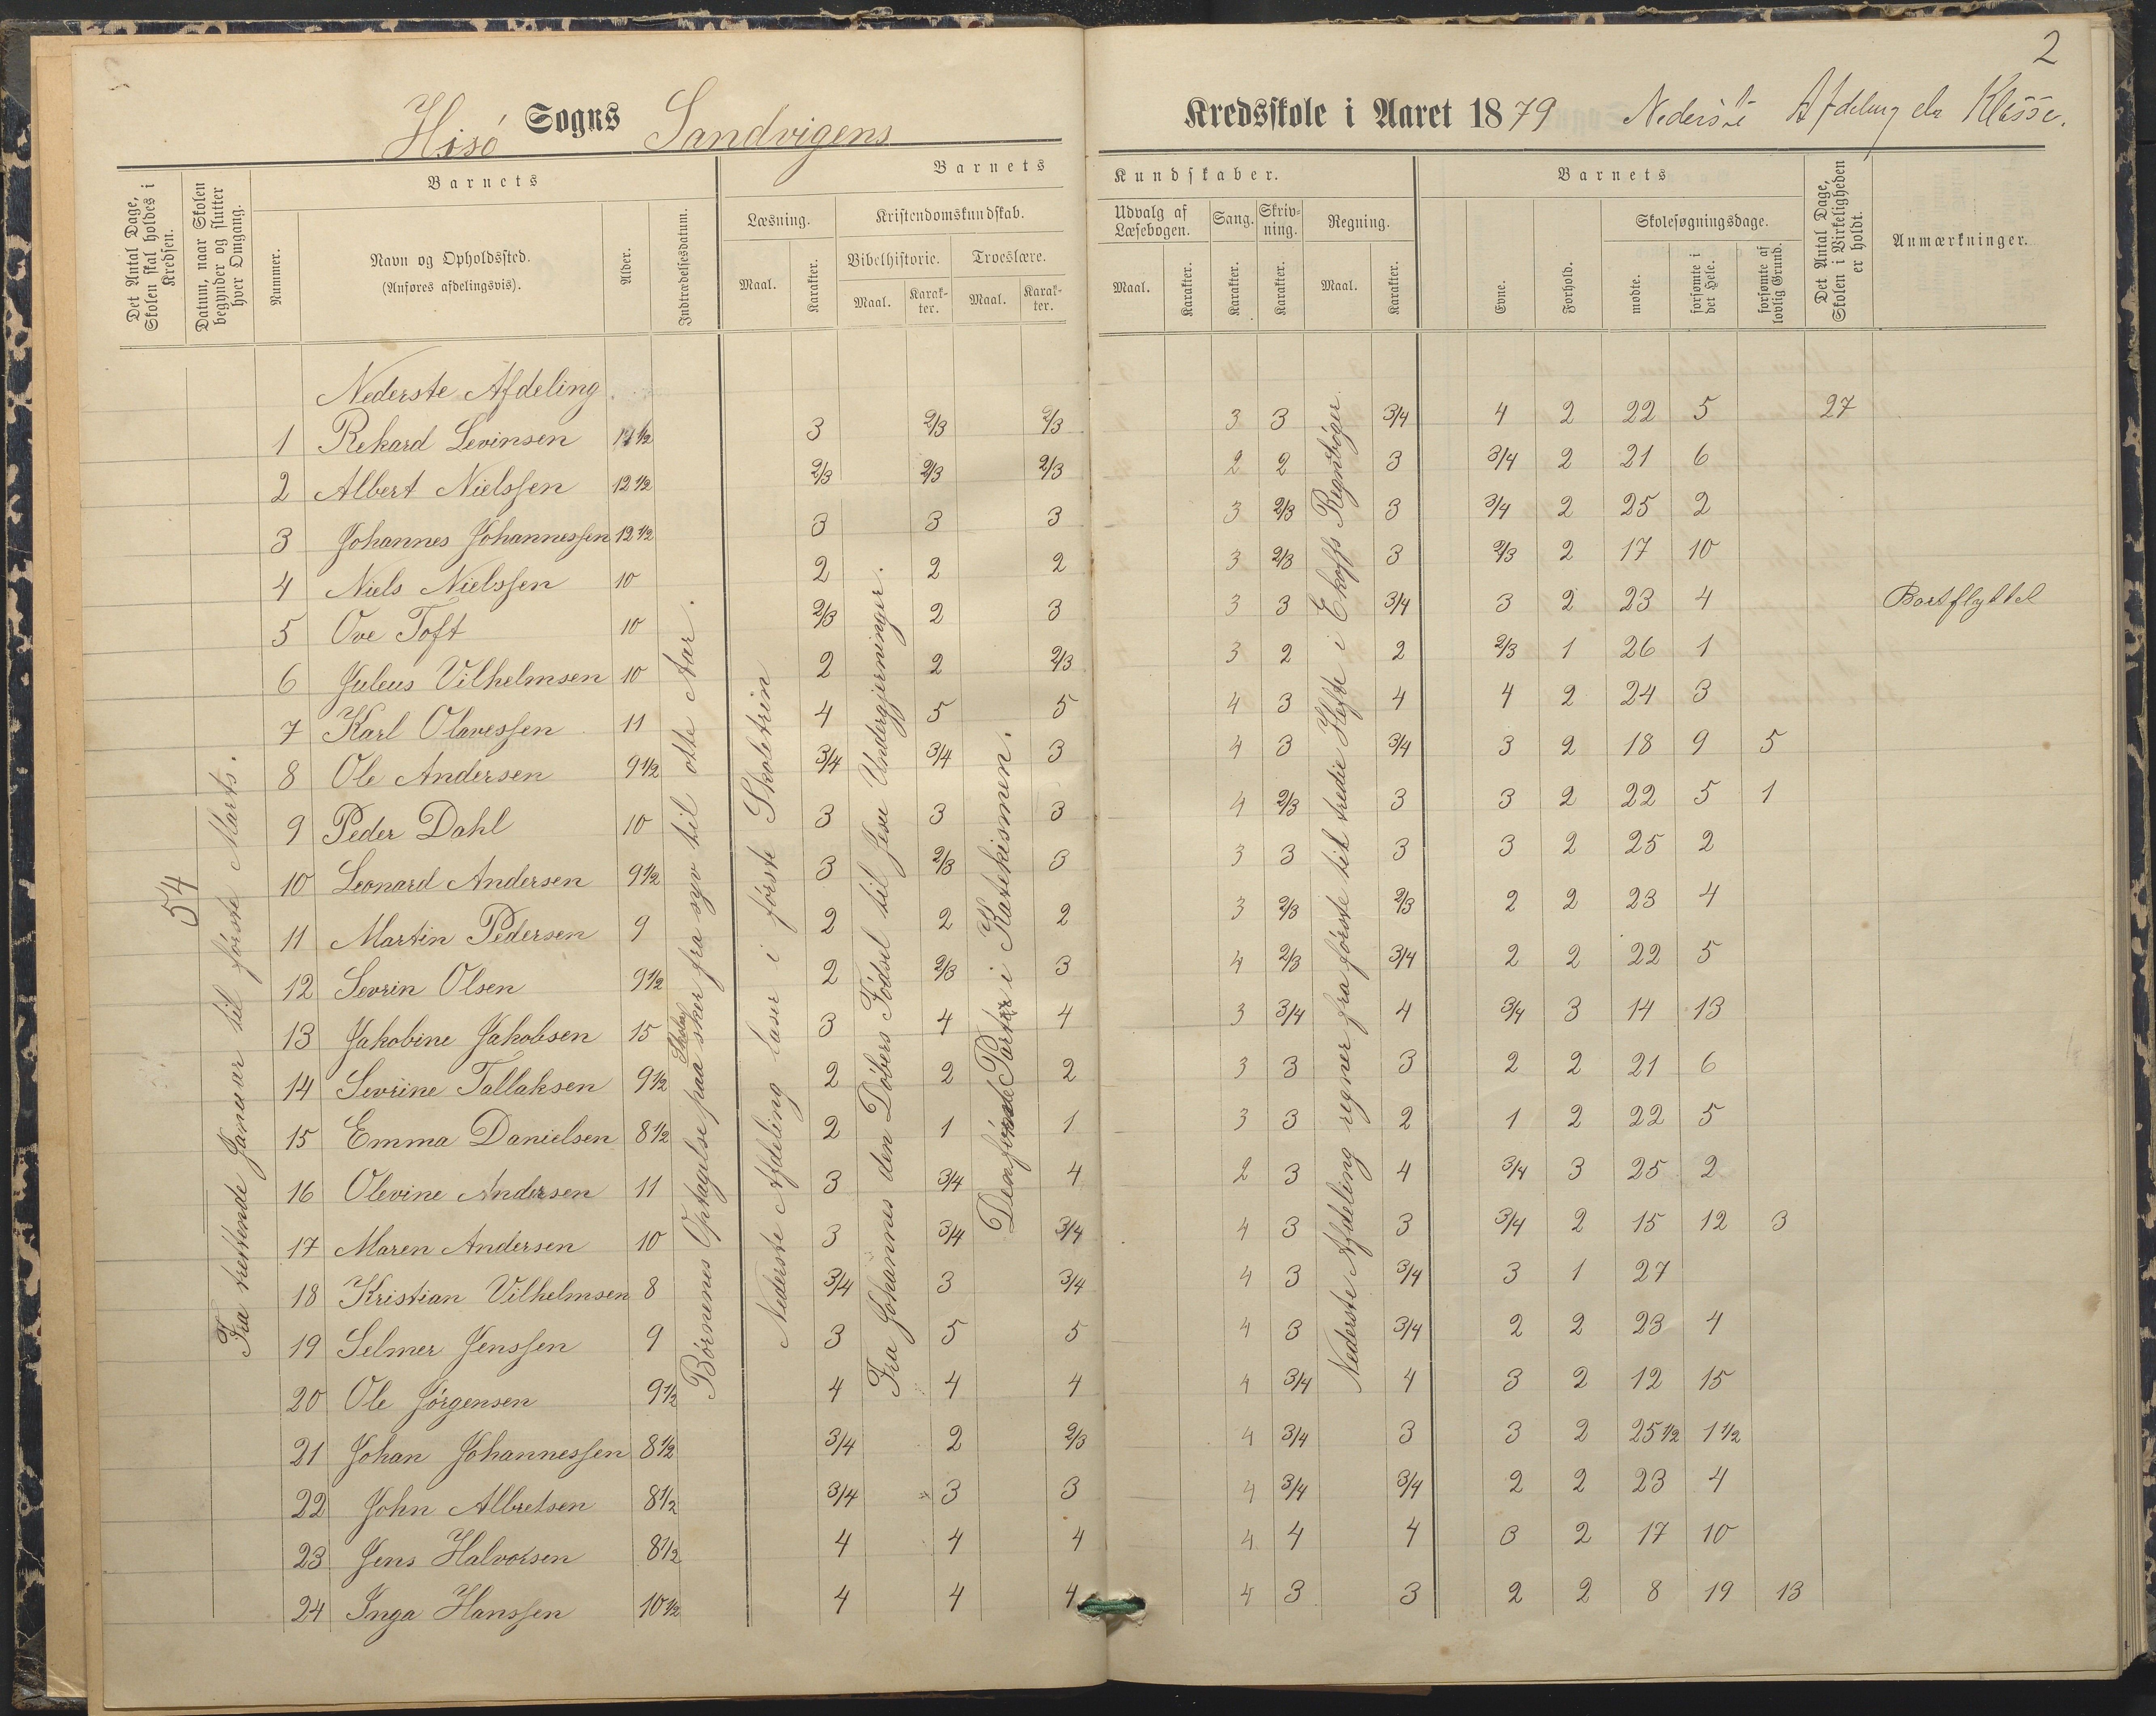 2
Hisö Sogns Sandvigens Kredsskole i Aaret 1879 Nederste Afdeling Klasse.
Det Antal Dage, Skolen skal holdes i Kredsen.
Datum, naar Skolen begynder og slutter hver Omgang.
Barnets
Nummer.
Navn og Opholdssted.
(Anføres afdelingsvis).
Alder.
Indtrædelsesdatum.
Barnets Kundskaber.
Læsning.
Maal.
Karakter.
Kristendomskundskab.
Bibelhistorie.
Maal.
Karakter.
Troeslære.
Maal.
Karakter.
Udvalg af Læsebogen.
Maal.
Karakter.
Sang.
Karakter.
Skrivning.
Karakter.
Regning.
Maal.
Karakter.
Barnets
Evne.
Forhold.
Skolesøgningsdage.
mødte.
forsømte i det Hele.
forsømte af lovlig Grund.
Det Antal Dage, Skolen i Virkeligheden er holdt.
Anmærkninger.
54
Fra trettende Januar til første Marts.
Børnenes Optagelse paa Skolen sker fra syv til otte Aar.
Nederste Afdeling læser i første Skoletrin
Fra Johannes den Døbers Fødsel til Jesu Undergjerninger.
Parter i Katekismen.
Nederste Afdeling regner fra første til tredie Hefte i Ekoffs Regnebøger.
Nederste Afdeling
1 Rekard Levinsen 11 1/2 3 2/3 2/3 3 3 3/4 4 2 22 5 27
2 Albert Nielssen 12 1/2 2/3 2/3 2/3 2 2 3 3/4 2 21 6
3 Johannes Johannessen 12 1/2 3 3 3 3 2/3 3 3/4 2 25 2
4 Niels Nielssen 10 2 2 2 3 2/3 3 2/3 2 17 10
5 Ove Toft 10 2/3 2 3 3 3 3/4 3 2 23 4 Bortflyttet
6 Juleus Vilhelmsen 10 2 2 2/3 3 2 2 2/3 1 26 1
7 Karl Olavessen 11 4 5 5 4 3 4 4 2 24 3
8 Ole Andersen 9 1/2 3/4 3/4 3 4 3 3/4 3 2 18 9 5
9 Peder Dahl 10 3 3 3 4 2/3 3 3 2 22 5 1
10 Leonard Andersen 9 1/2 3 2/3 3 3 3 3 3 2 25 2
11 Martin Pedersen 9 2 2 2 3 2/3 2/3 2 2 23 4
12 Sevrin Olsen 9 1/2 2 2/3 3 4 2/3 3/4 2 2 22 5
13 Jakobine Jakobsen 15 3 4 4 3 3/4 4 3/4 3 14 13
14 Sevrine Tallaksen 9 1/2 2 2 2 3 3 3 2 2 21 6
15 Emma Danielsen 8 1/2 2 1 1 3 3 2 1 2 22 5
16 Olevine Andersen 11 3 3/4 4 2 3 4 3/4 3 25 2
17 Maren Andersen 10 3 3/4 3/4 4 3 3 3/4 2 15 12 3
18 Kristian Vilhelmsen 8 3/4 3 3/4 4 3 3/4 3 1 27
19 Selmer Jenssen 9 3 5 5 4 3 3/4 2 2 23 4
20 Ole Jörgensen 9 1/2 4 4 4 4 3/4 4 3 2 12 15
21 Johan Johannessen 8 1/2 3/4 2 2/3 4 3/4 3 3 2 25 1/2 1 1/2
22 John Albretsen 8 1/2 3/4 3 3 4 3/4 3/4 2 2 23 4
23 Jens Halvorsen 8 1/2 4 4 4 4 4 4 3 2 17 10
24 Inga Hanssen 10 1/2 4 4 4 4 3 3 2 2 8 19 13